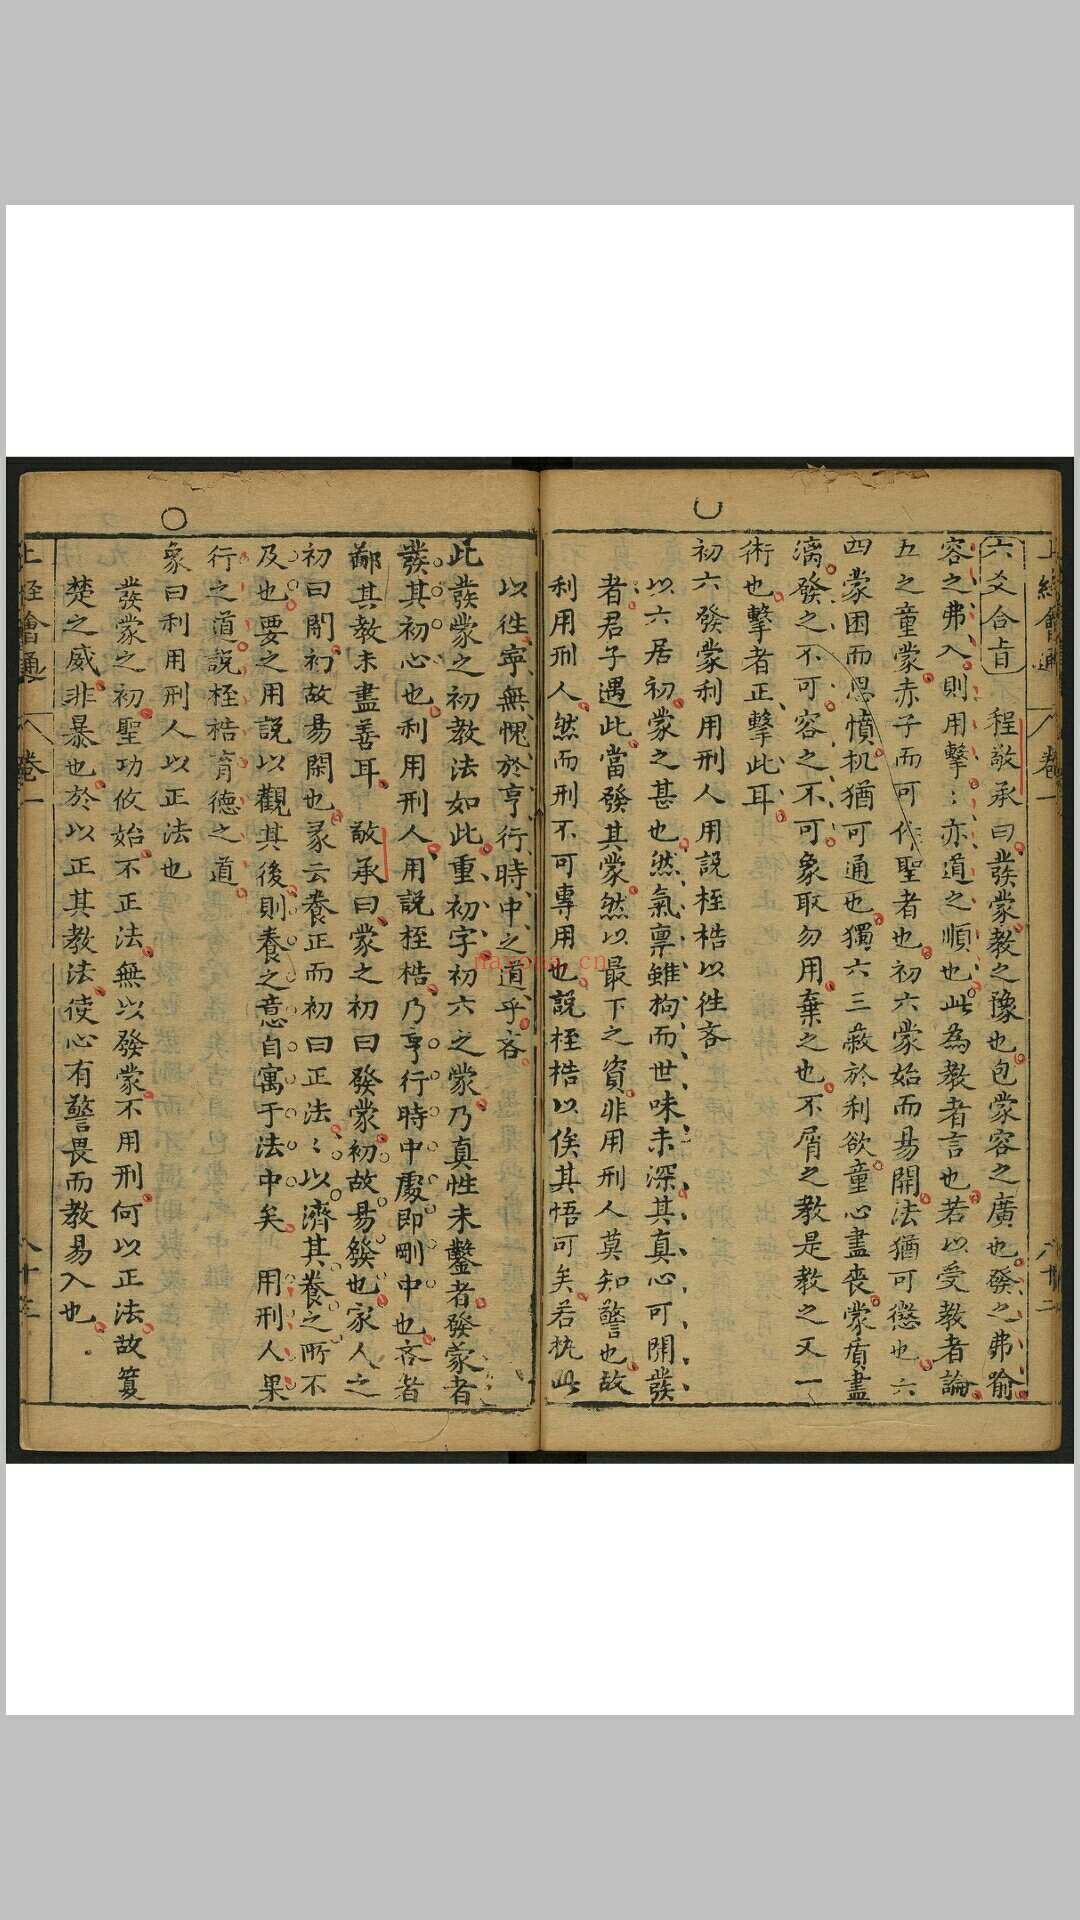 上經會通 卷一 八十二
六爻合旨 程敬承曰發蒙教之豫也包蒙容之廣也發之弗喻
容之弗入則用擊〻亦道之順也此為教者言也若以受教者論
五之童蒙赤子而可作聖者也初六蒙始而易開法猶可懲也六
四蒙困而思憤机猶可通也獨六三蔽於利欲童心盡喪蒙質盡
漓發之不可容之不可象取勿用棄之也不屑之教是教之又一
術也擊者正擊此耳
初六發蒙利用刑人用說桎梏以往吝
以六居初蒙之甚也然氣禀雖拘而世味未深其真心可開發
者君子遇此當發其蒙然以最下之資非用刑人莫知警也故
利用刑人然而刑不可專用也說桎梏以俟其悟可矣若执此
以往寧無愧於亨行時中之道乎吝
此發蒙之初教法如此重初字初六之蒙乃真性未鑿者發蒙者
發其初心也利用刑人用說桎梏乃亨行時中處即剛中也吝者
鄙其教未盡善耳 敬承曰蒙之初曰發蒙初故易發也家人之
初曰閑初故易閑也彖云養正而初曰正法〻以濟其養之所不
及也要之用說以觀其後則養之意自寓于法中矣 用刑人果
行之道說桎梏育德之道
象曰利用刑人以正法也
發蒙之初聖功攸始不正法無以發蒙不用刑何以正法故夏
楚之威非暴也於以正其教法使心有警畏而教易入也
上經會通 卷一 八十三
nayona.cn